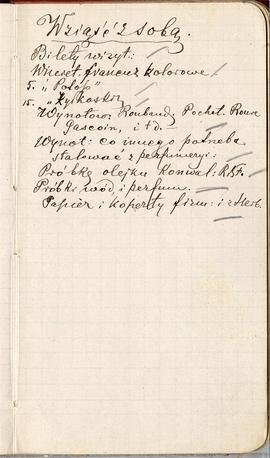 Wziąść z sobą.
Bilety wizyt:
francuz kolorowe
5. „
15. „
Wynotow. Roubaud, Pochet. Roure
Gascoin, i t d. —
Wynot: co innego potrzeba
stalować z perfumeryi:
Próbkę olejku Konwal:
Próbki wód, i perfum.
Papier i koperty firm: i z Herb.